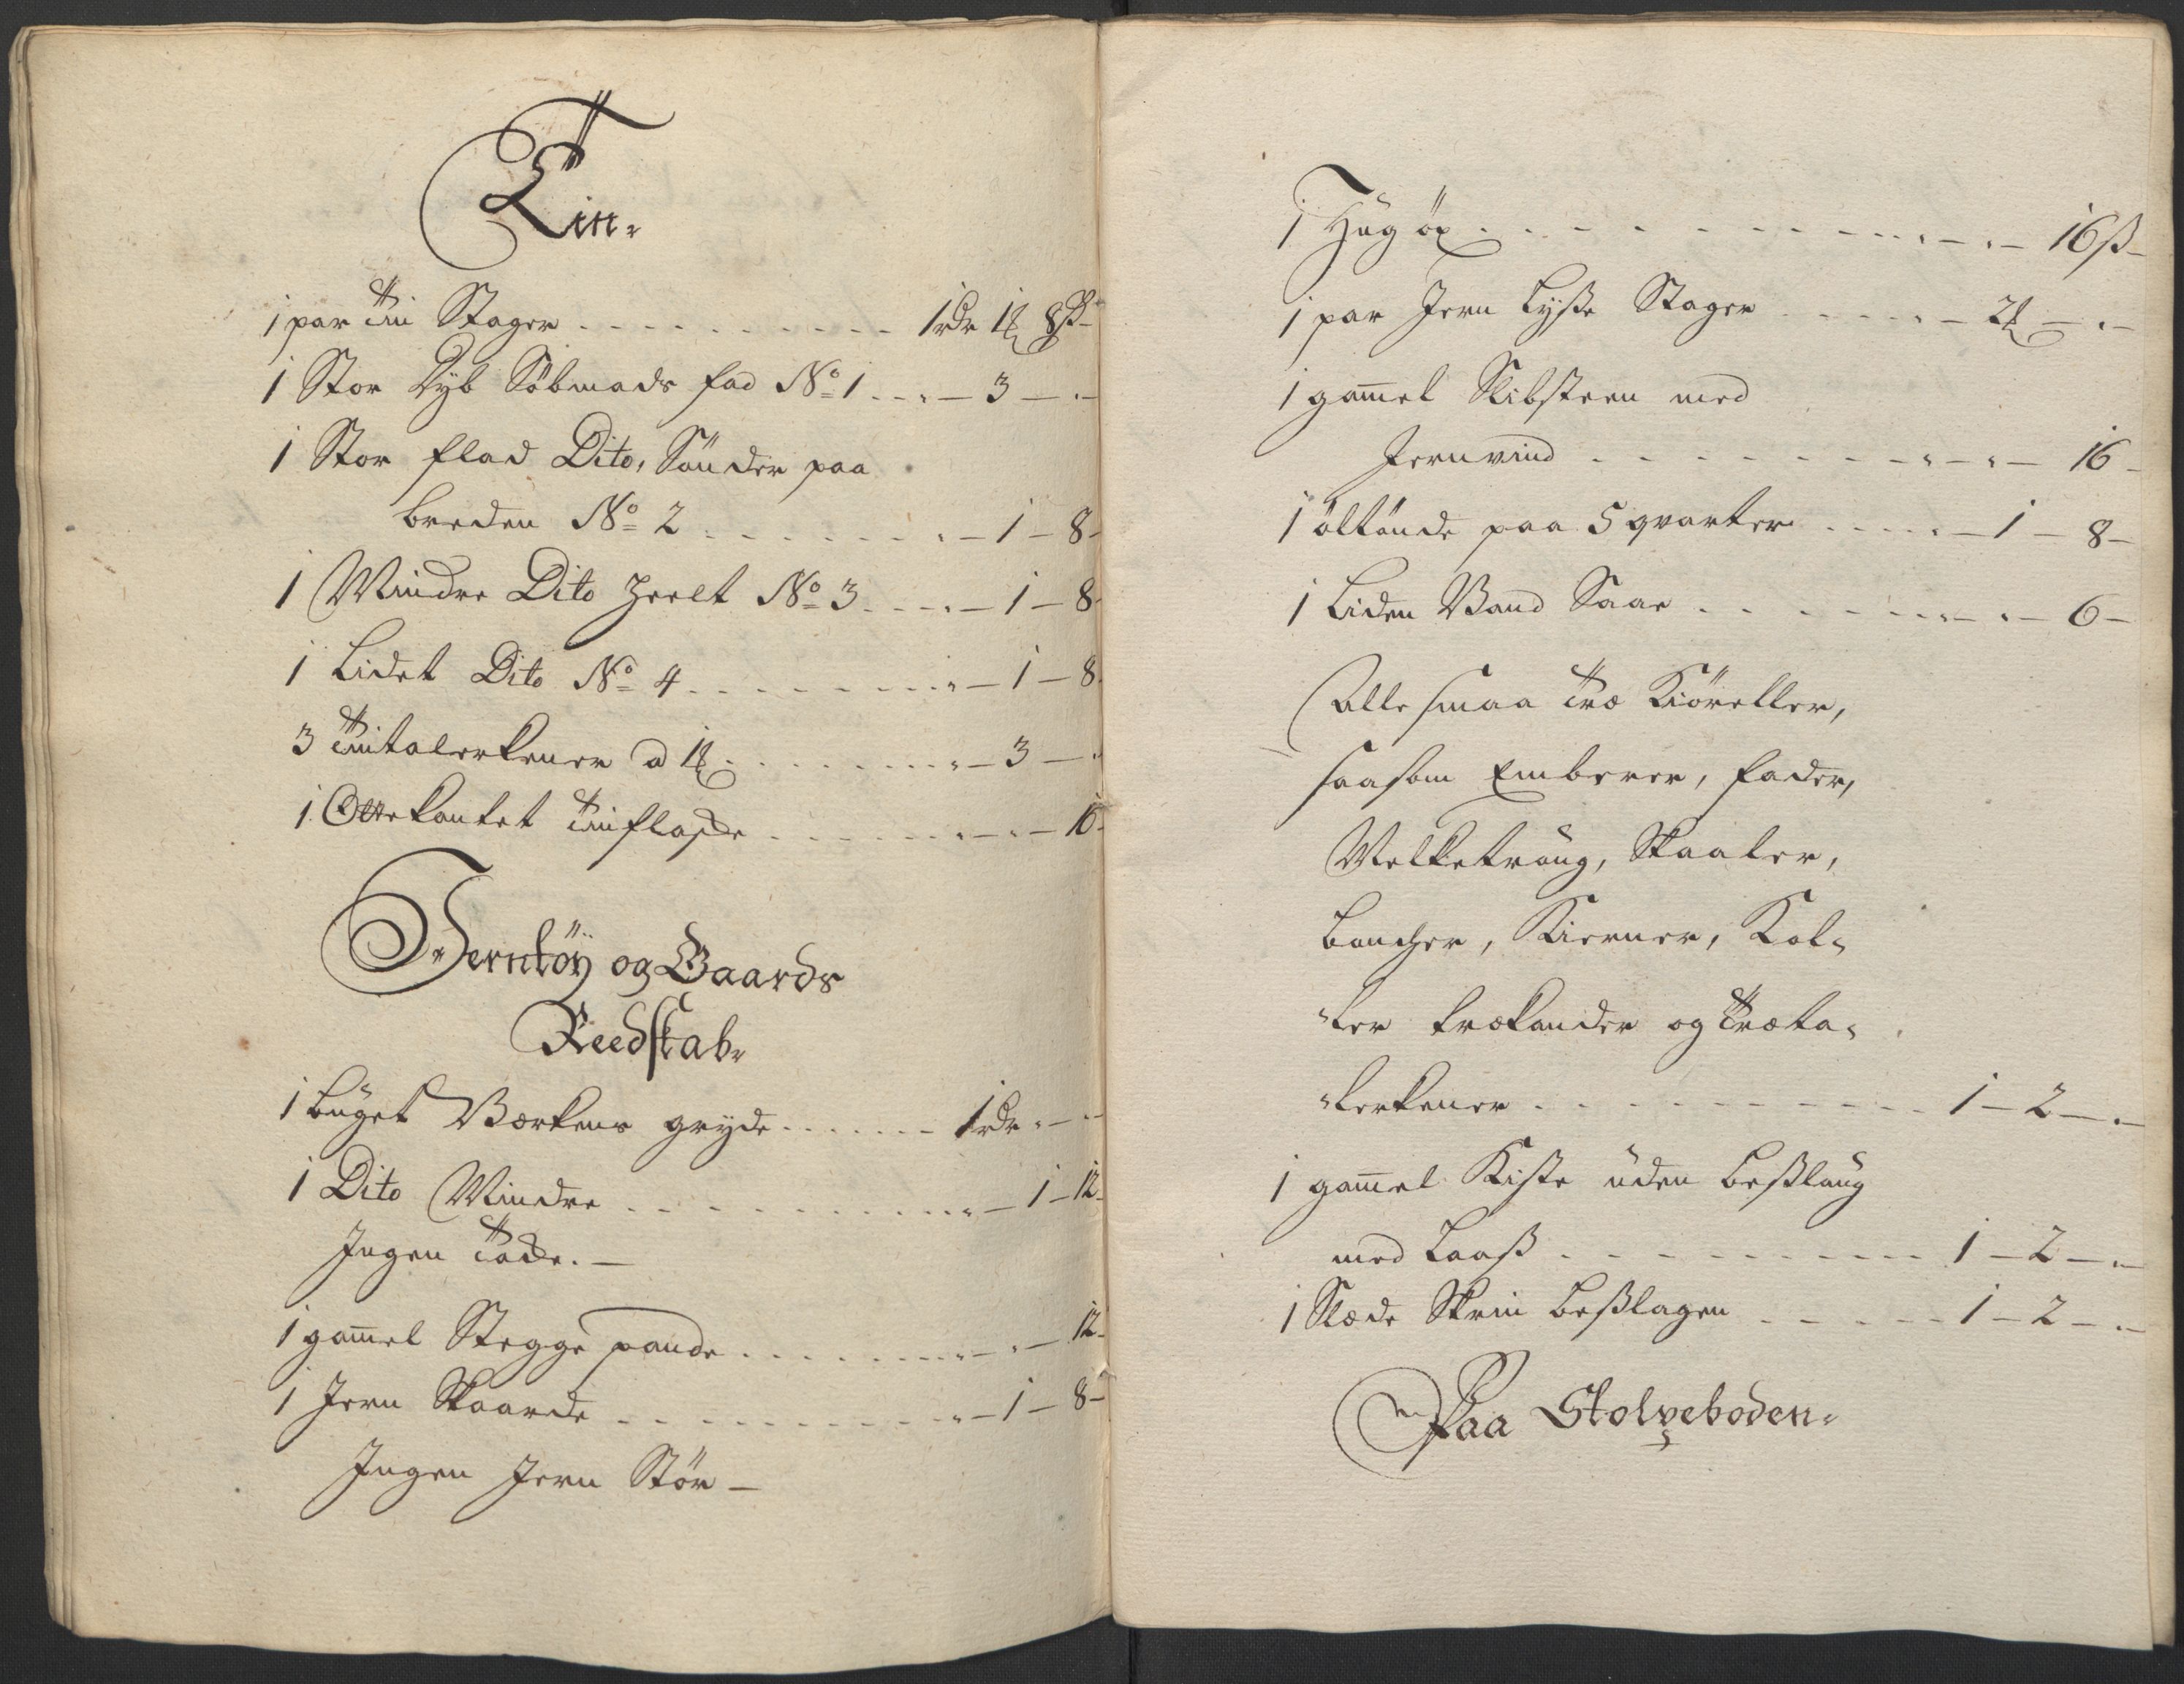 Tin-
1 par tin Stager . . . . . . . . . . 1rdr 1℔ 8ß-
1 Stor dyb Söbmads fad No 1 . . . - 3 - . -
1 Stor flad Dito, Sönder paa
breden No 2 . . . . . . . . - 1 - 8 -
1 Mindre Dito heelt No 3 . . . . - 1 - 8 -
1 Lidet Dito No 4 . . . . . . . . . - 1 - 8
3 tintalerkener a 1℔ . . . . . . . . - 3 - .
1 Ottekantet tinflaske . . . . . . . - . - 16 -
Jerntöy og Gaards
Reedskab-
1 buget Værkens gryde . . . . . . . 1rdr . - . -
1 Dito Mindre . . . . . . . . . . . . - 1 - 12 -
Ingen
1 gam̄el Stegge pande . . . . . . . . - . - 12 -
1 Jern Skaarde . . . . . . . . . . . - 1 - 8 -
Ingen Jern Stör -
1 Hug öx . . . . . . . . . . . . - . - 16ß -
1 par Jern Lyse Stager . . . . . - 2℔ - . -
1 gam̄el Slibsteen med
Jernvind . . . . . . . . . - . - 16 -
1 öltönde paa 5 qvarter . . . . . - 1 - 8 -
1 Liden Vand Saae . . . . . . . . - . - 6 -
Alle smaa træ Kiöreller,
saasom Emberer, fader,
Melketraug, Skaaler,
bancher, Kierner, Kol-
-ler trækander og træta-
-lerkener . . . . . . . . . . . 1 - 2 - . -
1 gam̄el Kiste uden beslaug
med Laaß . . . . . . . . . . 1 - 2 - . -
1 Slæde Skrin beslagen . . . . . . 1 - 2 - . -
Paa Stolpeboden-